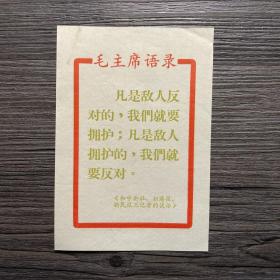 毛主席语录
凡是敌人反
对的，我們就要
拥护；凡是敌人
拥护的，我們就
要反对。
《和中央社、扫荡报、
新民报三记者的谈话》